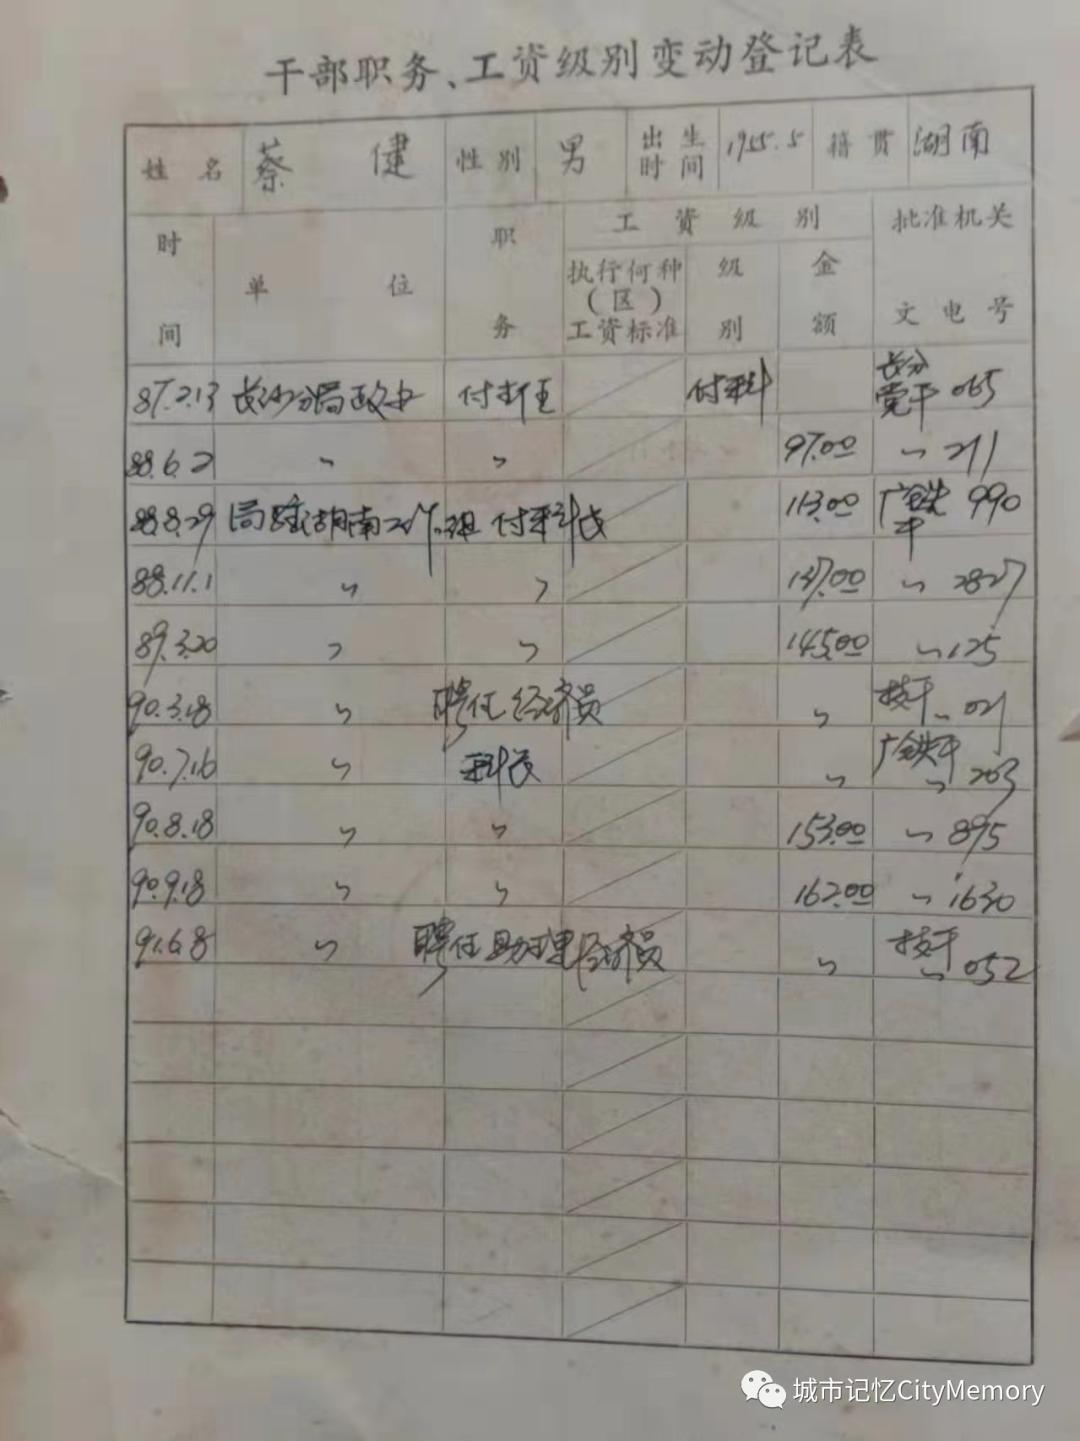 干部职务、工资级别变动登记表
姓名 蔡健 性别 男 出生时间 1955.5 籍贯 湖南
时间 单位 职务 工资级别 批准机关文电号
执行何种(区)工资标准 级别 金额
87.2.13 长沙分局政办 付主任 付科 长分党干 065
88.6.2 〃 〃 97.00 〃 211
88.8.29 局驻湖南工作组 付科长 113.00 广铁干 990
88.11.1 〃 〃 137.00 〃 2827
89.3.20 〃 〃 145.00 〃 125
90.3.18 〃 聘任经济员 〃 技干〃 021
90.7.16 〃 科长 〃 广铁干〃 203
90.8.18 〃 〃 153.00 〃 895
90.9.18 〃 〃 162.00 〃 1630
91.6.8 〃 聘任助理经济员 〃 技干〃 052
城市记忆CityMemory